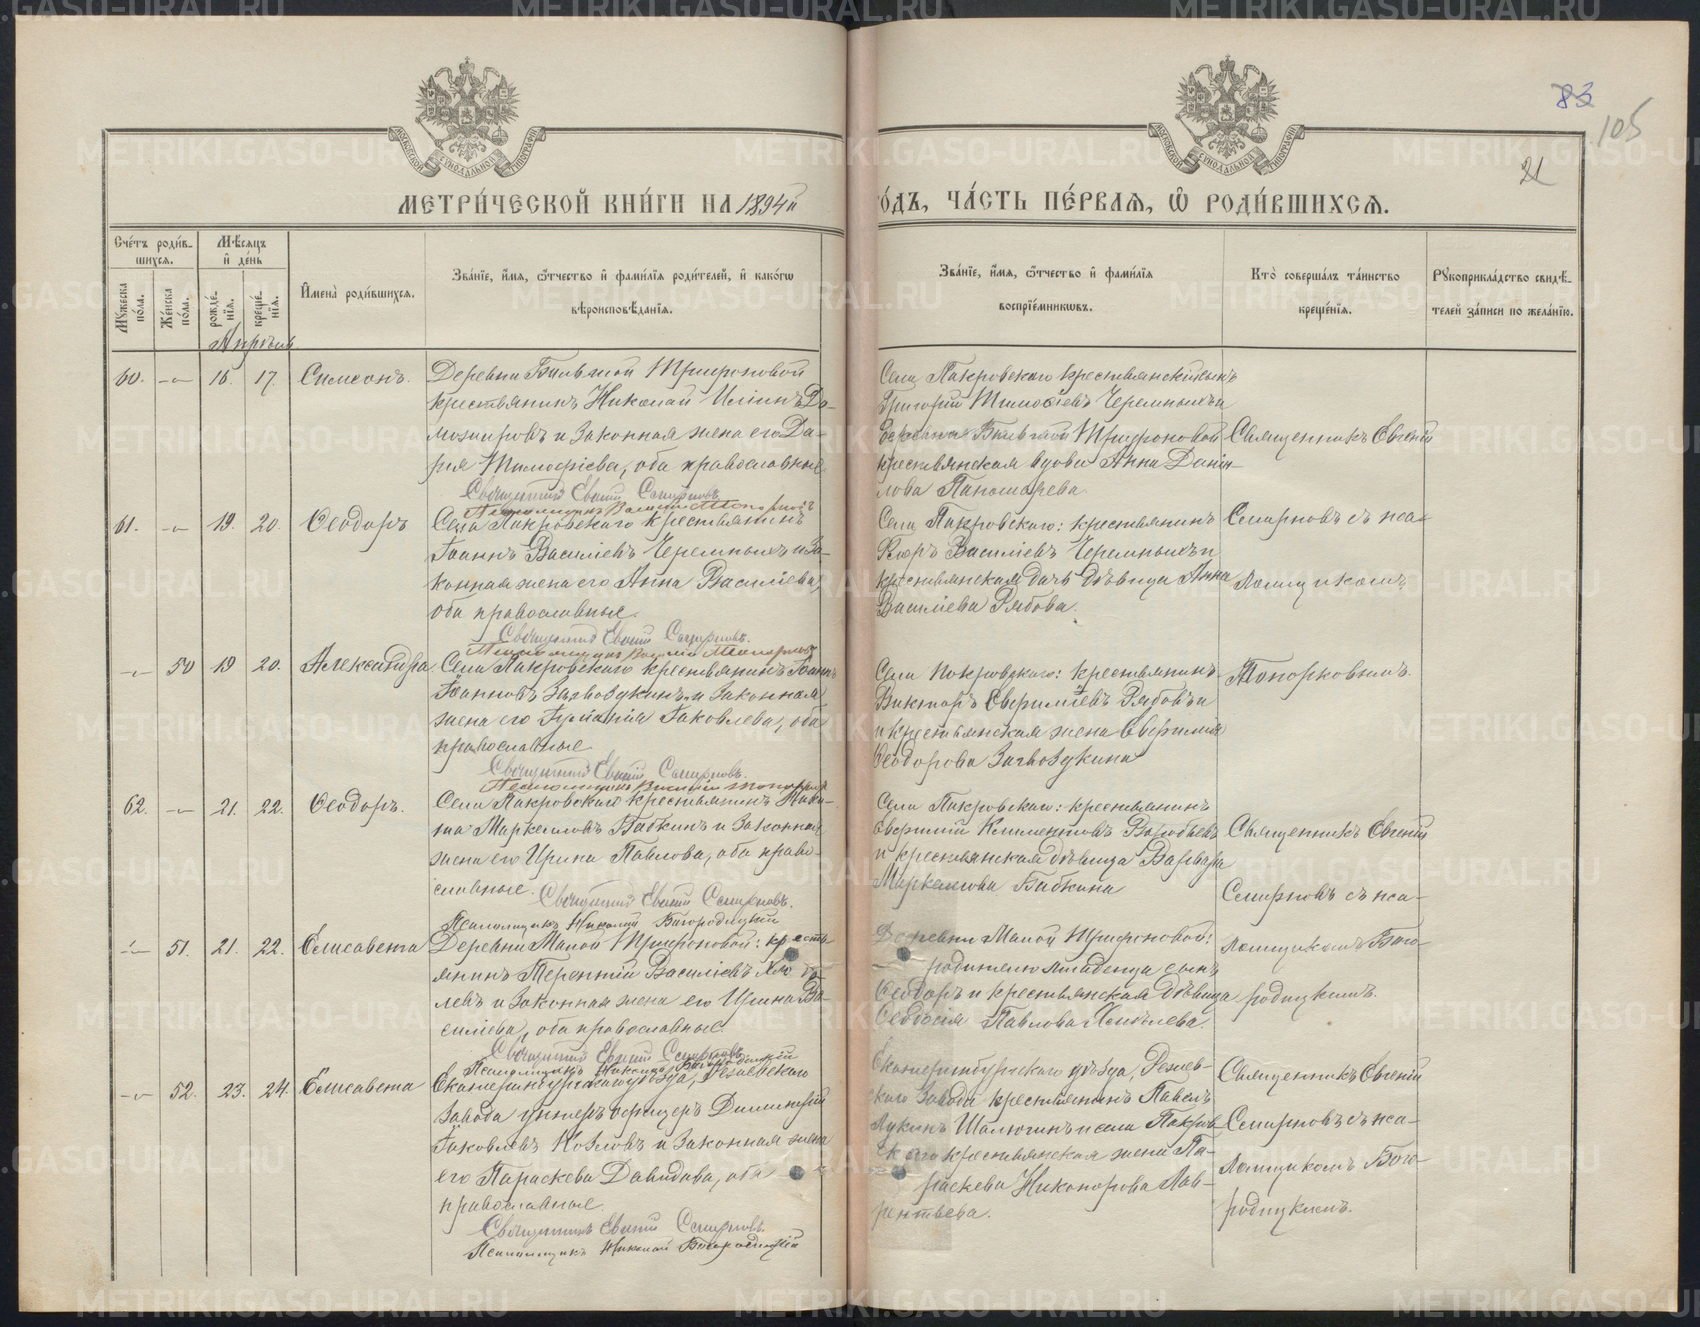 83
105
21
МЕТРИ́ЧЕСКОЙ КНИ́ГИ НА 1894й
ГО́ДЪ, ЧА́СТЬ ПЕ́РВАѦ, Ѡ РОДИ́ВШИХСѦ.
Сче́тъ роди́в-
шихсѧ.
Мѣ́сѧцъ
и҆ де́нь
Мꙋ́жеска по́ла.
Же́нска по́ла.
рожде́нїѧ.
креще́нїѧ.
И҆мена̀ роди́вшихсѧ.
Зва́нїе, и҆́мѧ, ѻ҆́тчество и҆ фами́лїѧ роди́телей, и҆ како́гѡ
вѣроисповѣ́данїѧ.
Зва́нїе, и҆́мѧ, ѻ҆́тчество и҆ фами́лїѧ
воспрїе́мникѡвъ.
Кто̀ соверша́лъ та́инство
креще́нїѧ.
Рꙋкоприкла́дство свидѣ́-
телей за́писи по жела́нїю.
Апрѣль
60. 16. 17. Симеонъ.
Деревни Большой Трифоновой
крестьянинъ Николай Иліинъ До-
можировъ и законная жена его Да-
рія Тимофіева, оба православные
Священникъ Евгеній Смирновъ
Села Покровскаго крестьянскій сынъ
Григорій Тимофіевъ Черемныхъ и
деревни Большой Трифоновой
крестьянская вдова Анна Дани-
лова Паномарева
Священникъ Евгеній
61. 19. 20. Ѳеодоръ
Села Покровскаго крестьянинъ
Іоаннъ Василіевъ Черемныхъ и за-
конная жена его Анна Василіева,
оба православные.
Священникъ Евгеній Смирновъ.
Села Покровскаго: крестьянинъ
Василіевъ Черемныхъ и
крестьянская дочь дѣвица Анна
Василіева Рябова.
Смирновъ съ пса-
ломщикомъ
50 19 20. Александра
Села Покровскаго крестьянинъ Іоаннъ
Іоанновъ Загвоздкинъ и законная
жена его Іуліанія Іаковлева, оба
православные
Священникъ Евгеній Смирновъ.
Села Покровскаго: крестьянинъ
Викторъ Евфиміевъ Рябовъ и
крестьянская жена Евфимія
Ѳеодорова Загвоздкина
Топорковымъ.
62. 21. 22. Ѳеодоръ.
Села Покровскаго крестьянинъ Ники-
та Маркелловъ Бабкинъ и законная
жена его Ирина Павлова, оба право-
славные.
Священникъ Евгеній Смирновъ.
Псаломщикъ Николай Богородицкій
Села Покровскаго: крестьянинъ
Евфимій Климентовъ Воробьевъ
и крестьянская дѣвица Варвара
Маркелова Бабкина
Священникъ Евгеній
Смирновъ съ пса-
51. 21. 22. Елисавета
Деревни Малой Трифоновой: кресть-
янинъ Терентій Василіевъ
и законная жена его Ирина Ва-
силіева, оба православные.
Священникъ Евгеній Смирновъ
Псаломщикъ Николай Богородицкій
Деревни Малой Трифоновой:
родителю младенца сынъ
Ѳеодоръ и крестьянская дѣвица
Ѳеодосія Павлова
ломщикомъ Бого-
родицкимъ.
52. 23. 24. Елисавета
Екатеринбургскаго уѣзда, Режевскаго
завода унтеръ офицеръ Димитрій
Іаковлевъ Козловъ и законная жена
его Параскева Давидова, оба
православные.
Священникъ Евгеній Смирновъ.
Псаломщикъ Николай Богородицкій
Екатеринбургскаго уѣзда, Режев-
скаго завода крестьянинъ Павелъ
Лукинъ Шалюгинъ и села Покров-
скаго крестьянская жена Па-
раскева Никонорова Лав-
рентьева.
Священникъ Евгеній
Смирновъ съ пса-
ломщикомъ Бого-
родицкимъ.
METRIKI.GASO-URAL.RU